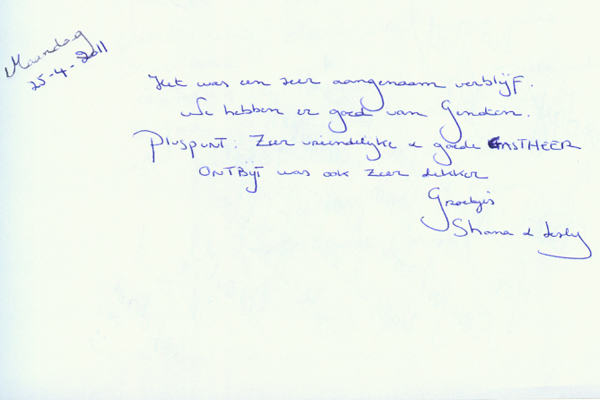 Maandag
25-4-2011
Het was een zeer aangenaam verblijf.
We hebben er goed van Genoten.
Pluspunt: Zeer vriendelijke & goede GASTHEER
ONTBIJT was ook zeer lekker
Groetjes
Shana & Lesly